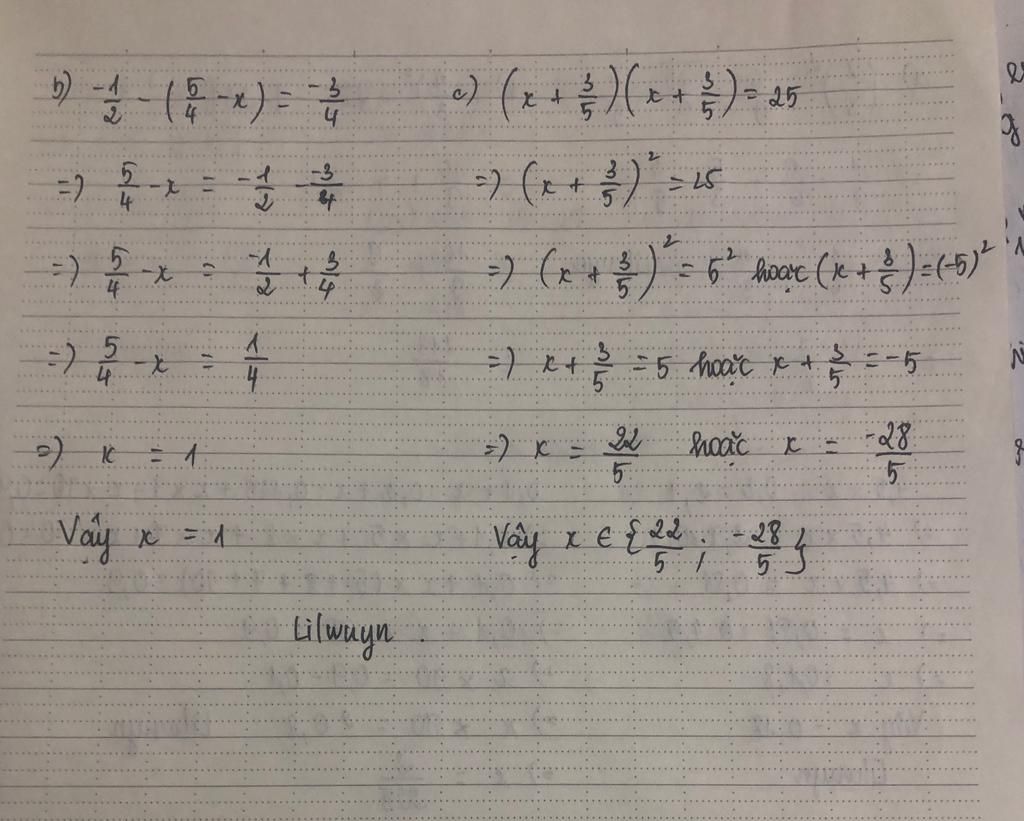 b) -1/2 - (5/4 - x) = -3/4
=) 5/4 - x = -1/2 - -3/4
=) 5/4 - x = -1/2 + 3/4
=) 5/4 - x = 1/4
=) x = 1
Vậy x = 1
c) (x + 3/5)(x + 3/5) = 25
=) (x + 3/5)² = 25
=) (x + 3/5)² = 5² hoặc (x + 3/5) = (-5)²
=) x + 3/5 = 5 hoặc x + 3/5 = -5
=) x = 22/5 hoặc x = -28/5
Vậy x ∈ {22/5 ; -28/5}
Lilwuyn .